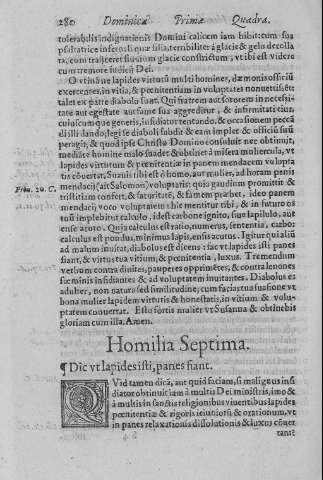 280 Dominicæ Primæ Quadra.
tolerabilis indignationis Domini calicem iam bibit: cum sua
psaltatrice infernali quæ filia, terribiliter à glacie & gelo decolla
ta, cum traijceret fluuium glacie constrictum, vt ibi est videre
cum tremore iudicij Dei.
O vtinã ne lapides virtutũ multi homines, dæmonis officiũ
exercentes, in vitia, & pœnitentiam in voluptates conuertissẽt
tales ex patre diabolo sunt. Qui fratrem aut sororem in necessi
tate aut egestate aut fame sua aggreditur, & infirmitati eius,
cuiuscumque generis, insidiatur tentando, & occasionem peccã
di illi dando, legitẽ diaboli subdit & eam implet & officiũ suũ
peragit, & quod ipse Christo Domino consuluit nec obtinuit,
mediãte homine malo suadet & obtinet à misera muliercula, vt
lapides virtutum & pœnitentiæ in panem mendacem volupta
tis cõuertat. Suauis tibi est ô homo, aut mulier, ad horam panis
Prou. 20. C. mendacij (ait Salomon) voluptatis: quia gaudium promittit &
tristitiam confert, & saturitatẽ, & famem præbet, ideo panem
mendacij voco voluptatem: tibi mentitur tibi, & in futuro os
tuũ implebitur calculo, idest carbone ignito, siue lapillo, aut
ense acuto. Quia calculus est ratio, numerus, sententia, carbo:
calculus est pondus, minimus lapis, ensis acutus. Igitur qui aliũ
ad malum inuitat, diabolus est dicens: fac vt lapides isti panes
fiant, & virtus tua vitium, & pœnitentia, luxus. Tremendum
verbum contra diuites, pauperes opprimẽtes, & contra lenones
fœminis insidiantes & ad voluptatem inuitantes. Diabolus es
adulter, non natura sed similitudine; cum factis tua suasione vt
bona mulier lapidem virtutis & honestatis, in vitium & volu-
ptatem conuertat. Esto fortis mulier vt Susanna & obtinebis
gloriam cum illa. Amen.
Homilia Septima.
¶ Dic vt lapides isti, panes fiant.
QVid tamen dicã, aut quid faciam, si malignus insi
diator obtinuit iam à multis Dei ministris, imo &
à multis in sanctis religionibus viuentibus lapides
pœnitentiæ & rigoris ieiuniorũ & orationum, vt
in panes relaxationis dissolutionis & luxus cõuer
tant?